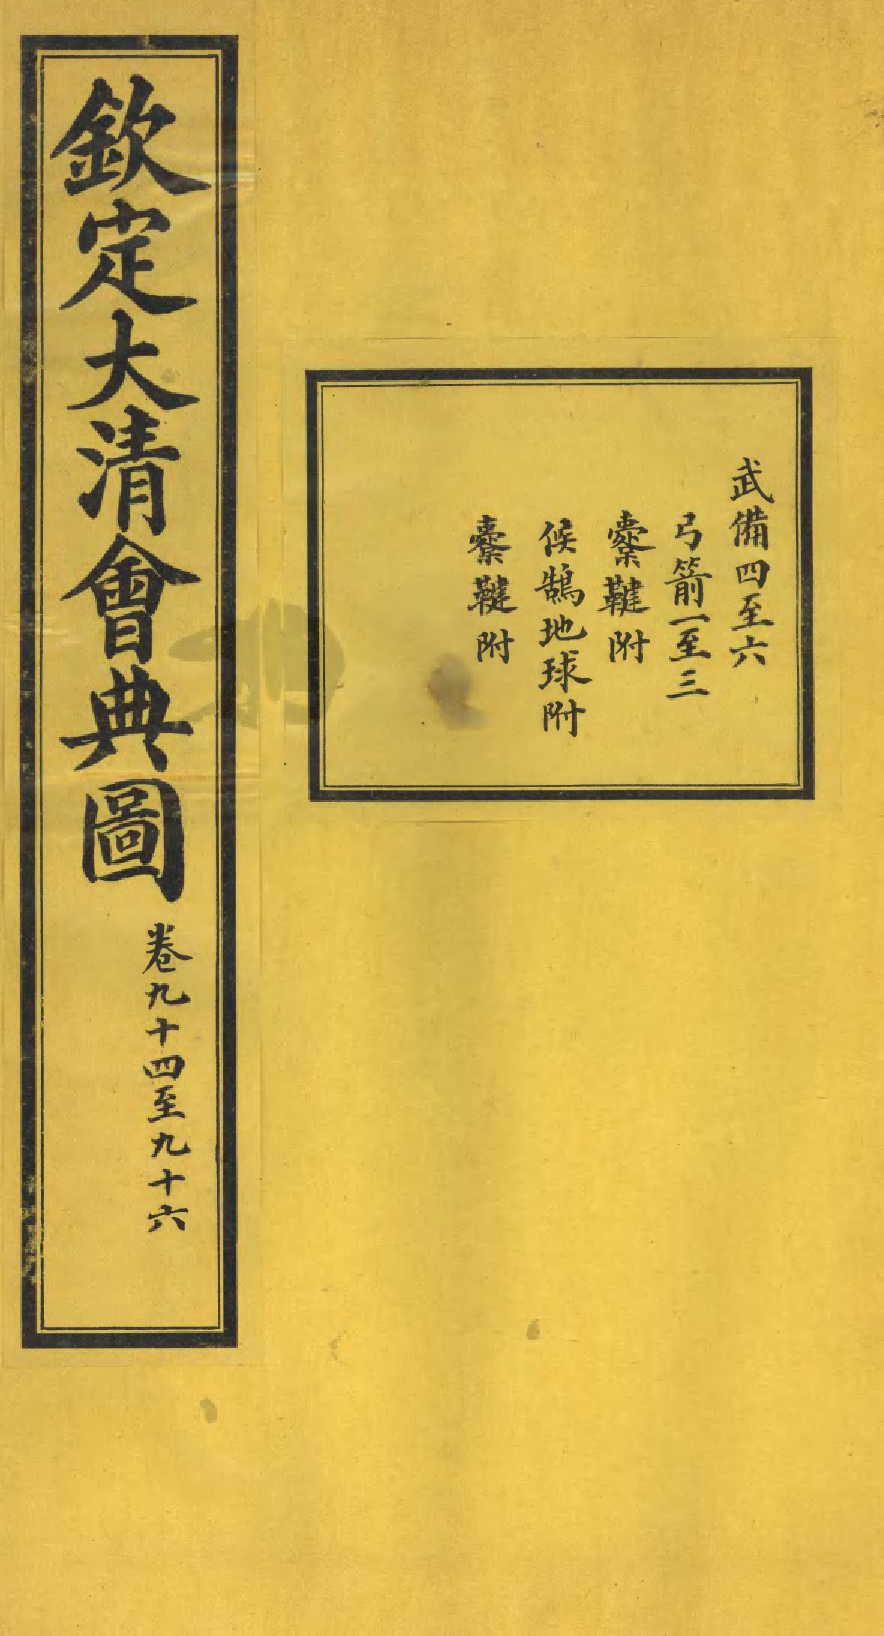 欽定大清會典圖
卷九十四至九十六
武備四至六
弓箭一至三
櫜鞬附
侯鵠地球附
櫜鞬附